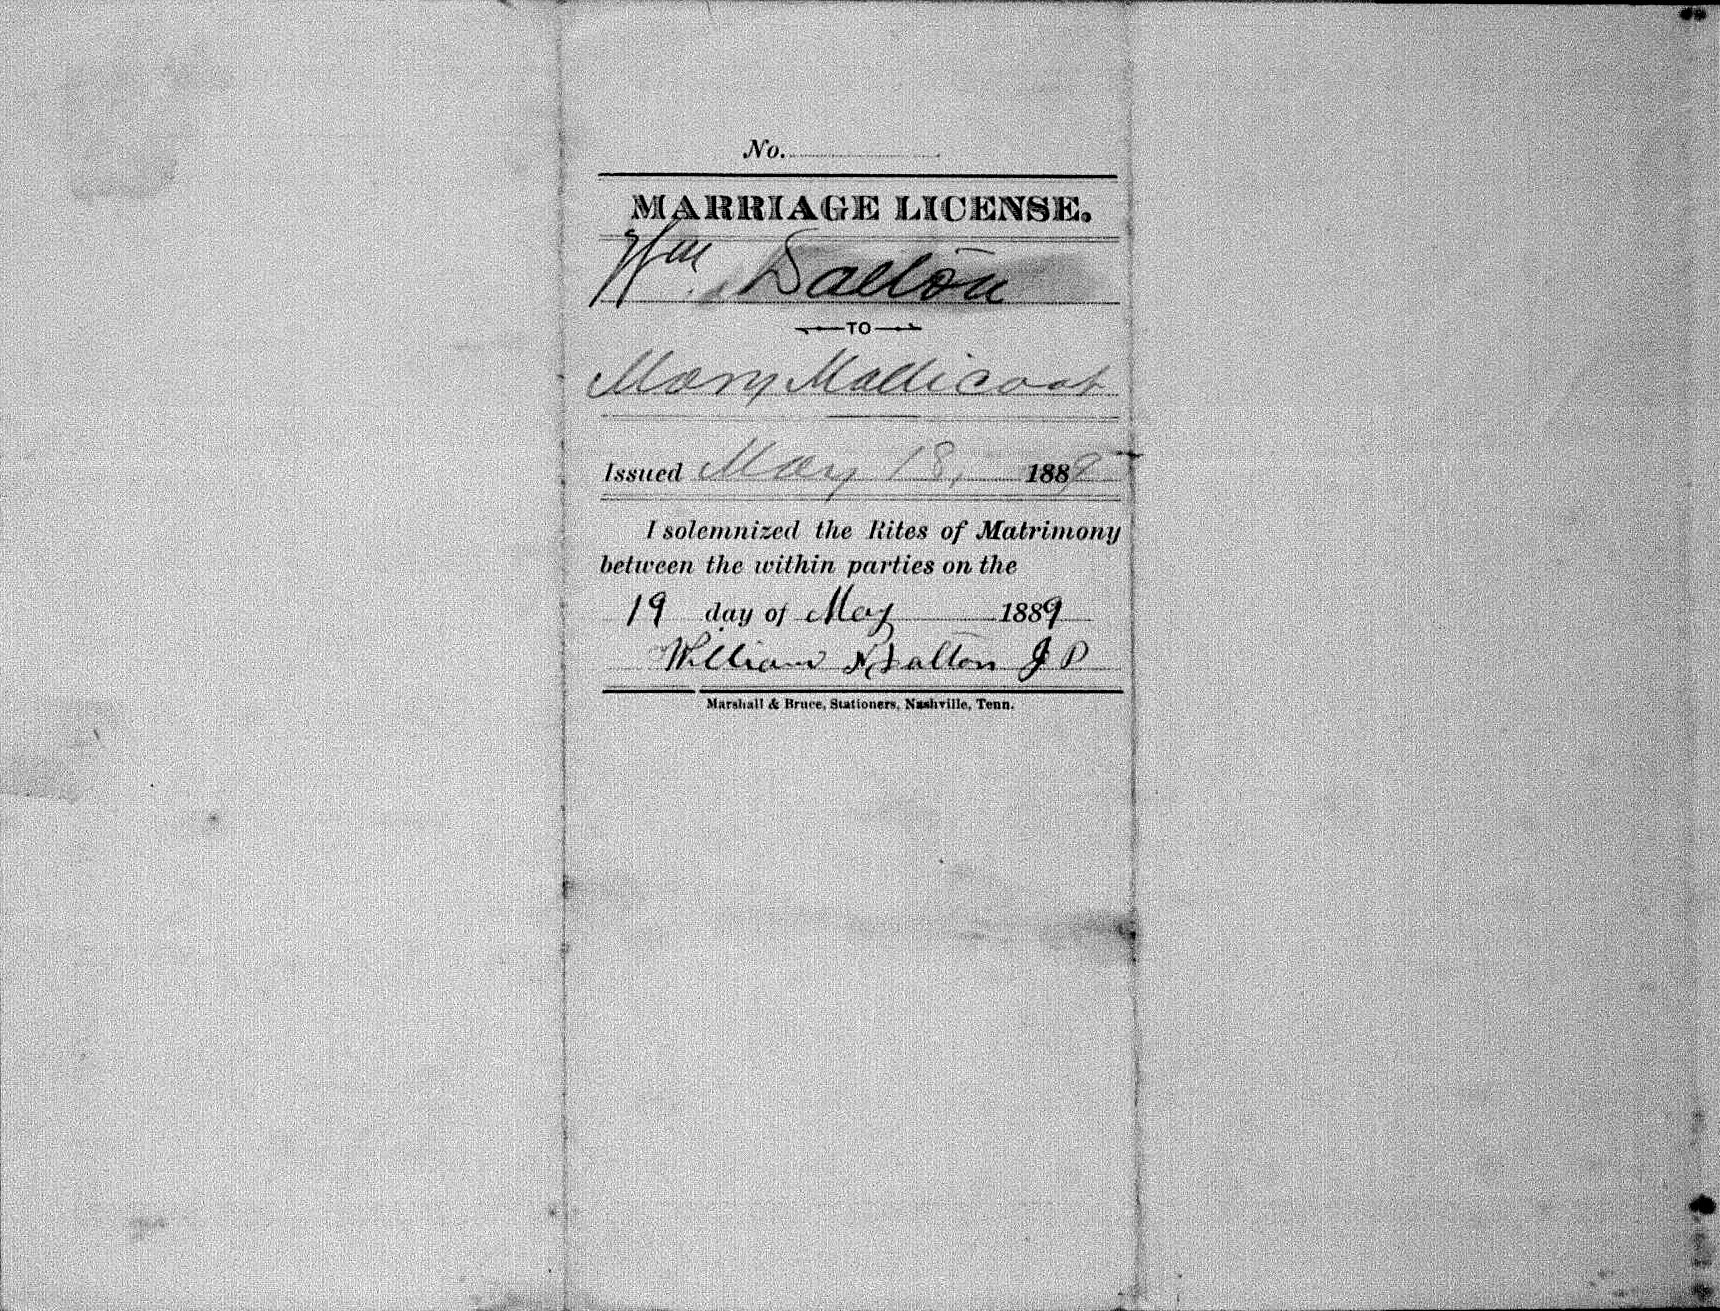 No.
MARRIAGE LICENSE.
Wm Dalton
TO
Mary Mallicoat
Issued May 18, 1889
I solemnized the Rites of Matrimony
between the within parties on the
19 day of May 1889
William N Dalton J P
Marshall & Bruce, Stationers, Nashville, Tenn.